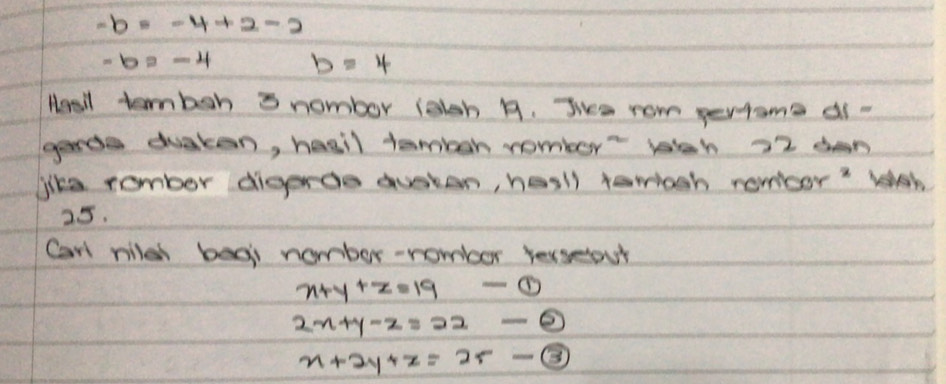 -b = -4+2-2
-b = -4 b = 4
Hasil tambah 3 nombor ialah 19. Jika nom pertama di-
ganda duakan, hasil tambah nombor² ialah 22 dan
jika nombor diganda duakan, hasil tambah nombor² ialah
25.
Cari nilai bagi nombor-nombor tersebut
x+y+z=19 — ①
2x+y-z=22 — ②
x+2y+z=25 — ③